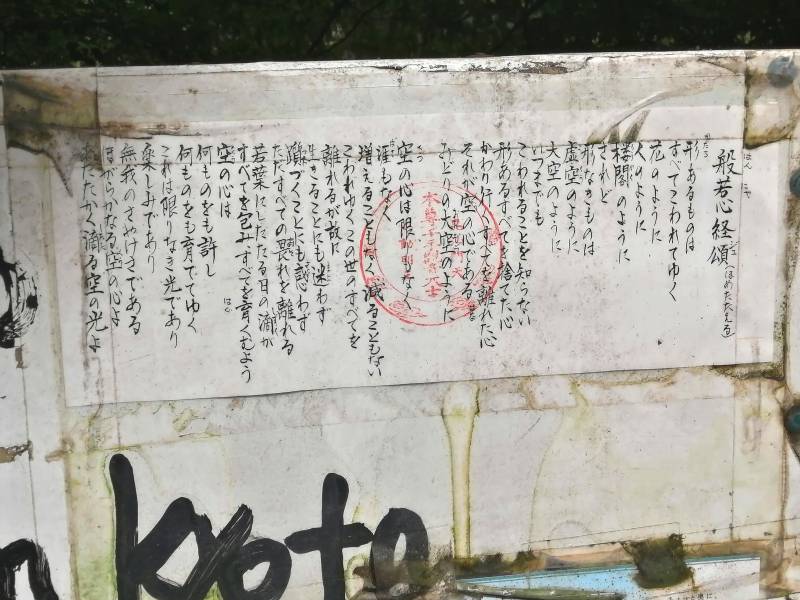 般若心経頌(ほめたたえる)
形あるものは
すべてこわれてゆく
花のように
くのように
楼閣のように
されど
形なきものは
虚空のように
大空のように
いつまでも
こわれることを知らない
形あるすべてを捨てた心
かわり行くすべてを離れた心
それが空の心である
みどりの大空のように
空の心は限りもなく
涯もなく
増えることもなく減ることもない
こわれゆくこの世のすべてを
離れるが故に
生きることにも迷わず
躓づくことにも惑わず
ただすべての畏れを離れる
若葉にしたたる日の滴が
すべてを包みすべてを育くむよう
空の心は
何ものをも許し
何ものをも育ててゆく
これは限りなき光であり
楽しみであり
無我のさやけさである
ほがらかなる空の心よ
あたたかく滴る空の光よ
koto